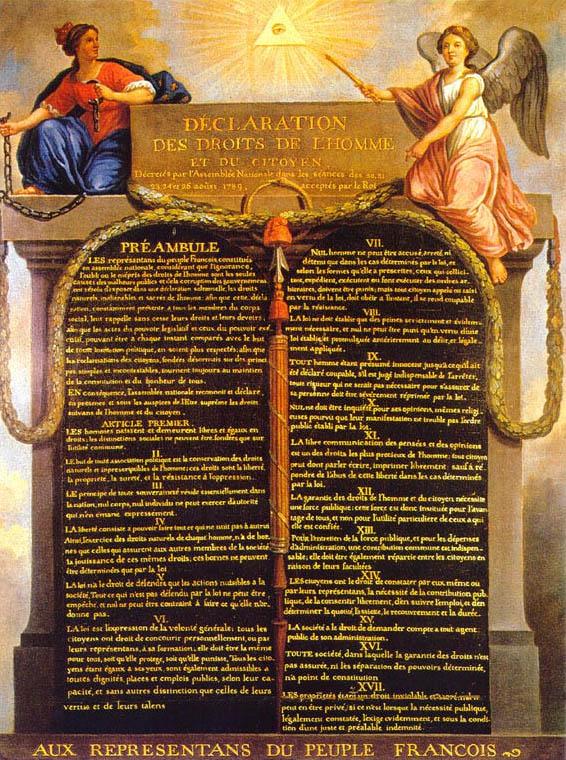 DÉCLARATION
DES DROITS DE L'HOMME
ET DU CITOYEN,
Décrétés par l'Assemblée Nationale dans les séances des 20, 21
23, 24 et 26 août 1789, acceptés par le Roi
PRÉAMBULE
LES représentans du peuple François, constitués
en assemblée nationale, considérant que l'ignorance,
l'oubli ou le mépris des droits de l'homme sont les seules
causes des malheurs publics et de la corruption des gouvernemens
ont résolu d'exposer dans une déclaration solemnelle, les droits
naturels, inaliénables et sacrés de l'homme: afin que cette décla
ration, constamment présente à tous les membres du corps
social, leur rappelle sans cesse leurs droits et leurs devoirs;
afin que les actes du pouvoir legislatif et ceux du pouvoir exé
cutif, pouvant être à chaque instant comparés avec le but
de toute institution politique, en soient plus respectés; afin que
les réclamations des citoyens, fondées désormais sur des princi
pes simples et incontestables, tournent toujours au maintien
de la constitution et du bonheur de tous.
EN conséquence, l'assemblée nationale reconnoît et déclare,
en présence et sous les auspices de l'Etre suprême les droits
suivans de l'homme et du citoyen.
ARTICLE PREMIER.
LES hommes naissent et demeurent libres et égaux en
droits; les distinctions sociales ne peuvent être fondées que sur
l'utilité commune.
II.
LE but de toute association politique est la conservation des droits
naturels et imprescriptibles de l'homme; ces droits sont la liberté,
la propriété, la sureté, et la résistance à l'oppression.
III.
LE principe de toute souveraineté réside essentiellement dans
la nation, nul corps, nul individu ne peut exercer d'autorité
qui n'en émane expressement.
IV.
LA liberté consiste à pouvoir faire tout ce qui ne nuit pas à autrui
Ainsi, l'exercice des droits naturels de chaque homme, n'a de bor-
nes que celles qui assurent aux autres membres de la société
la jouissance de ces mêmes droits; ces bornes ne peuvent
être déterminées que par la loi
V.
LA loi n'a le droit de défendre que les actions nuisibles à la
société. Tout ce qui n'est pas défendu par la loi ne peut être
empêché, et nul ne peut être contraint à faire ce qu'elle n'or-
donne pas.
VI.
LA loi est l'expression de la volonté générale; tous les
citoyens ont droit de concourir personnellement, ou par
leurs représentans, à sa formation; elle doit être la même
pour tous, soit qu'elle protege, soit qu'elle punisse. Tous les cito
yens étant égaux à ses yeux, sont également admissibles à
toutes dignités, places et emplois publics, selon leur ca-
pacité, et sans autres distinction que celles de leurs
vertus et de leurs talens
VII.
NUL homme ne peut être accusé, arreté, ni
détenu que dans les cas déterminés par la loi, et
selon les formes qu'elle a prescrites, ceux qui sollici-
tent, expédient, exécutent ou font exécuter des ordres ar-
bitraires, doivent être punis; mais tout citoyen appelé ou saisi
en vertu de la loi, doit obéir à l'instant, il se rend coupable
par la résistance.
VIII.
LA loi ne doit établir que des peines strictement et évidem-
ment nécessaire, et nul ne peut être puni qu'en vertu d'une
loi établie et promulguée antérierement au délit, et légale
ment appliquée.
IX.
TOUT homme étant présumé innocent jusqu'à ce qu'il ait
été déclaré coupable, s'il est jugé indispensable de l'arrêter,
toute rigueur qui ne serait pas nécessaire pour s'assurer de
sa personne doit être sévèrement réprimée par la loi.
X.
NUL ne doit être inquiété pour ses opinions, mêmes religi-
euses pourvu que leur manifestation ne trouble pas l'ordre
public établi par la loi.
XI.
LA libre communication des pensées et des opinions
est un des droits les plus precieux de l'homme; tout citoyen
peut donc parler écrire, imprimer librement: sauf à ré-
pondre de l'abus de cette liberté dans les cas déterminés
par la loi.
XII.
LA garantie des droits de l'homme et du citoyen nécessite
une force publique; cette force est donc instituée pour l'avan-
tage de tous, et non pour l'utilité particuliere de ceux à qui
elle est confiée.
XIII.
POUR l'entretien de la force publique, et pour les dépenses
d'administration, une contribution commune est indispen-
sable; elle doit être également répartie entre les citoyens en
raison de leurs facultées
XIV.
LES citoyens ont le droit de constater par eux même ou
par leurs représentans, la nécessité de la contribution pub-
lique, de la consentir librement, d'en suivre l'emploi, et d'en
déterminer la quotité, l'assiette, le recouvrement et la durée.
XV.
LA société a le droit de demander compte à tout agent
public de son administration.
XVI.
TOUTE société, dans laquelle la garantie des droits n'est
pas assurée, ni les séparation des pouvoirs déterminée,
n'a point de constitution
XVII.
LES propriétés étant un droit inviolable et sacré, nul ne
peut en être privé, si ce n'est lorsque la nécessité publique,
légalement constatée, l'exige evidemment, et sous la condi-
tion d'une juste et préalable indemnité.
AUX REPRESENTANS DU PEUPLE FRANCOIS